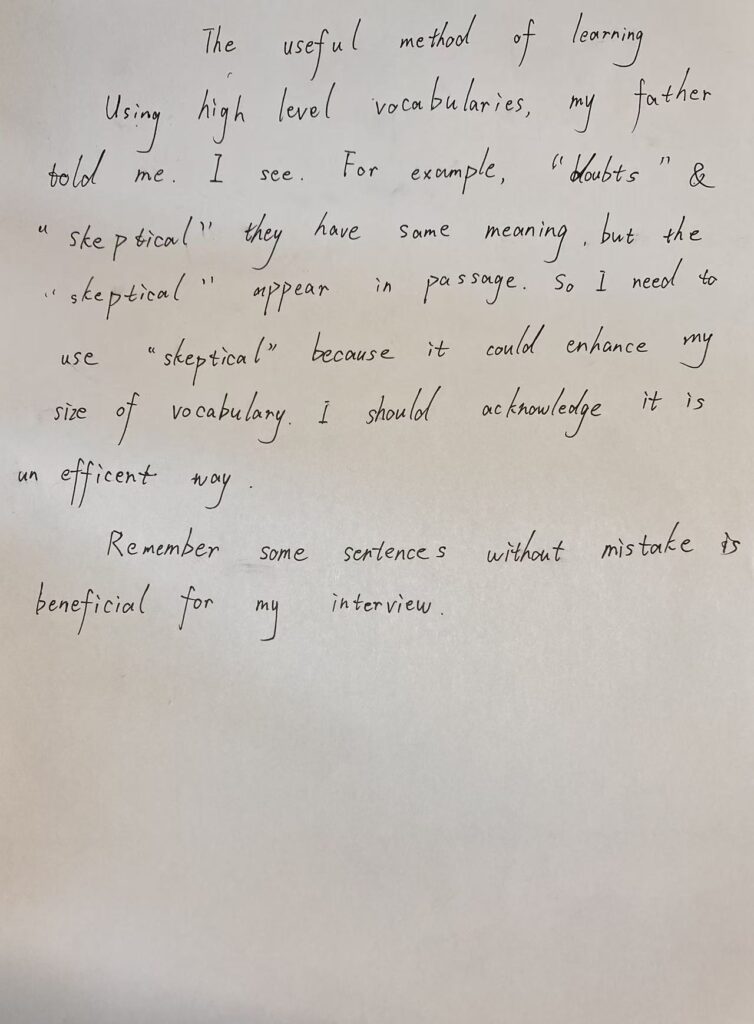 The useful method of learning
Using high level vocabularies, my father
told me. I see. For example, "doubts" &
"skeptical" they have same meaning, but the
"skeptical" appear in passage. So I need to
use "skeptical" because it could enhance my
size of vocabulary. I should acknowledge it is
un efficent way.
Remember some sentences without mistake is
beneficial for my interview.